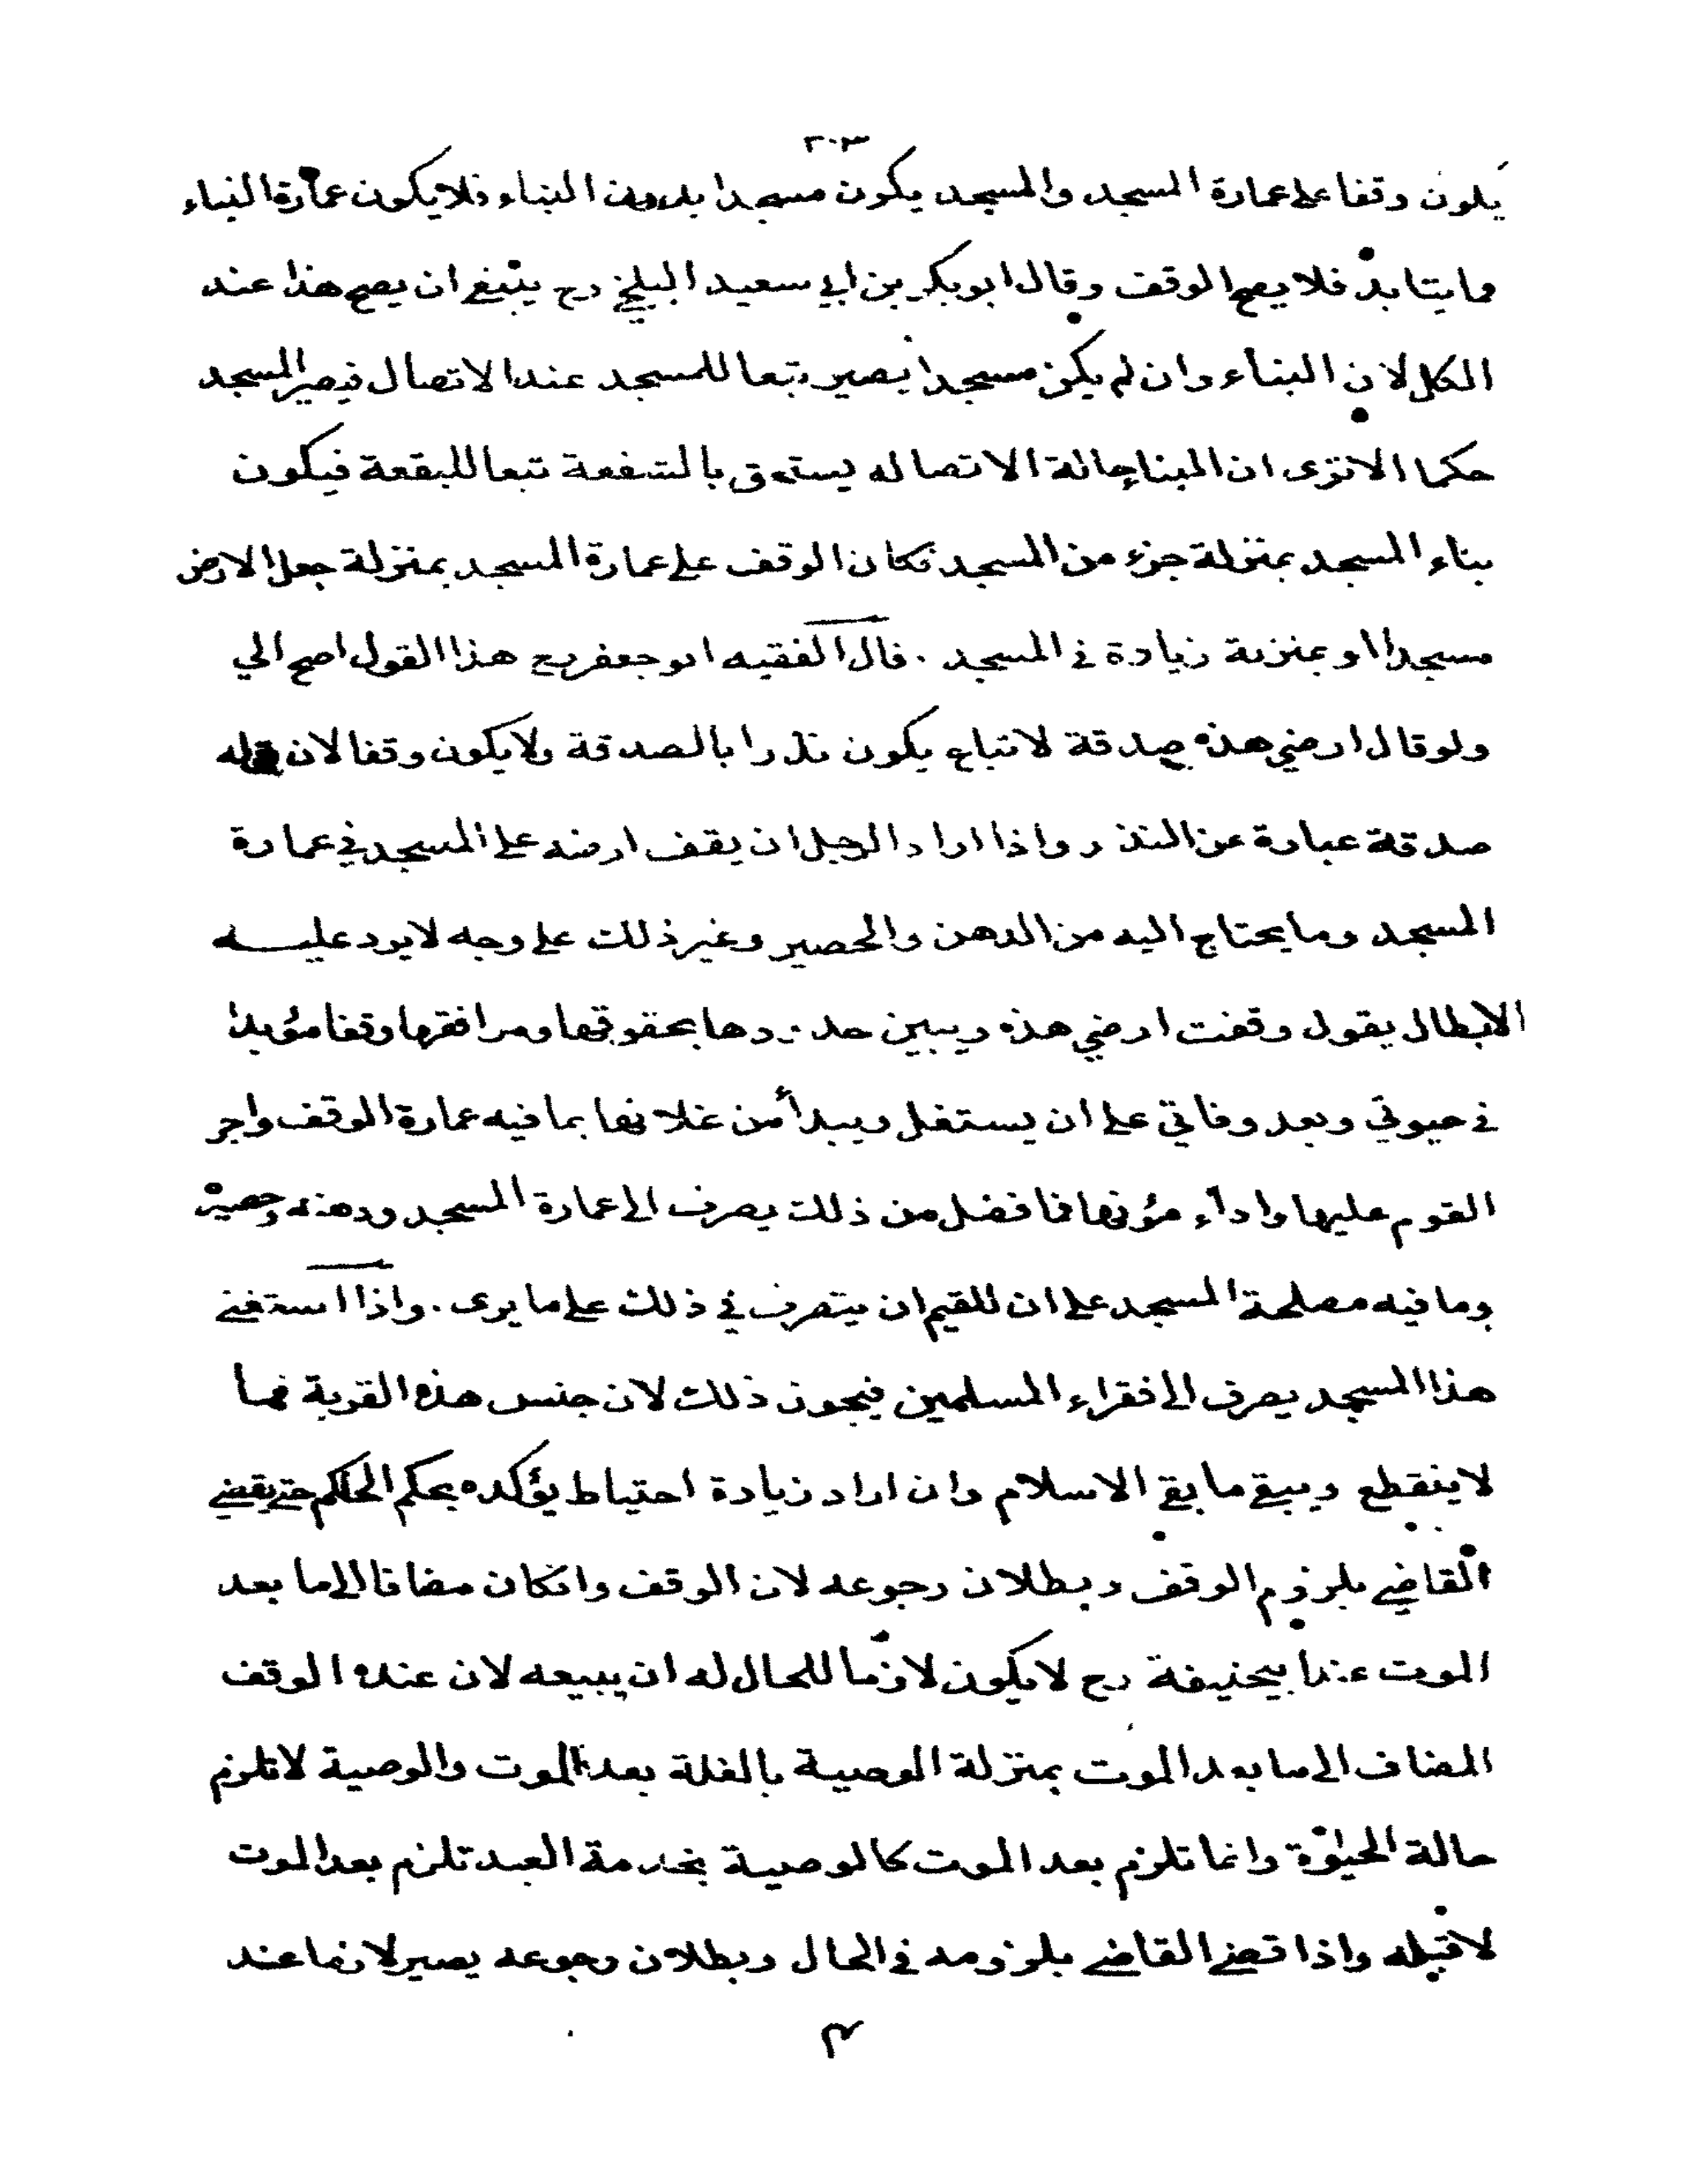 ٣٠٣
يكون وقفا على عمارة المسجد والمسجد يكون مسجدا بدون البناء فلا يكون عمارة البناء
مما يتابد فلا يصح الوقف وقال ابو بكر بن ابي سعيد البلخي رح ينبغي ان يصح هذا عند
الكل لان البناء وان لم يكن مسجدا يصير تبعا للمسجد عند الاتصال فيصير المسجد
حكما الا ترى ان البناء حالة الاتصاله يستحق بالشفعة تبعا للبقعة فيكون
بناء المسجد بمنزلة جزء من المسجد فكان الوقف على عمارة المسجد بمنزلة جعل الارض
مسجدا او بمنزلة زيادة في المسجد . قال الفقيه ابو جعفر رح هذا القول اصح الي
ولو قال ارضي هذه صدقة لاتباع يكون نذرا بالصدقة ولا يكون وقفا لان قوله
صدقة عبارة عن النذر واذا اراد الرجل ان يقف ارضه على المسجد في عمارة
المسجد وما يحتاج اليه من الدهن والحصير وغير ذلك على وجه لا يرد عليه
الابطال يقول وقفت ارضي هذه ويبين حدودها بحقوقها ومرافقها وقفا مؤبدا
في حيوتي وبعد وفاتي على ان يستغل ويبدأ من غلاتها بما فيه عمارة الوقف واجر
القوم عليها واداء مؤنها فما فضل من ذلك يصرف الى عمارة المسجد ودهنه وحصيره
وما فيه مصلحة المسجد على ان للقيم ان يتصرف في ذلك على ما يرى . واذا استغنى
هذا المسجد يصرف الى فقراء المسلمين فيجوز ذلك لان جنس هذه القربة مما
لا ينقطع ويبقى ما بقي الاسلام وان اراد زيادة احتياط يؤكده بحكم الحاكم حتى يقضي
القاضي بلزوم الوقف وبطلان رجوعه لان الوقف وان كان مضافا الى ما بعد
الموت عند ابيحنيفة رح لا يكون لازما للحال له ان يبيعه لان عنده الوقف
المضاف الى ما بعد الموت بمنزلة الوصية بالغلة بعد الموت والوصية لا تلزم
حالة الحيوة وانما تلزم بعد الموت كالوصية بخدمة العبد تلزم بعد الموت
لا قبله واذا قضى القاضي بلزومه في الحال وبطلان رجوعه يصير لازما عند